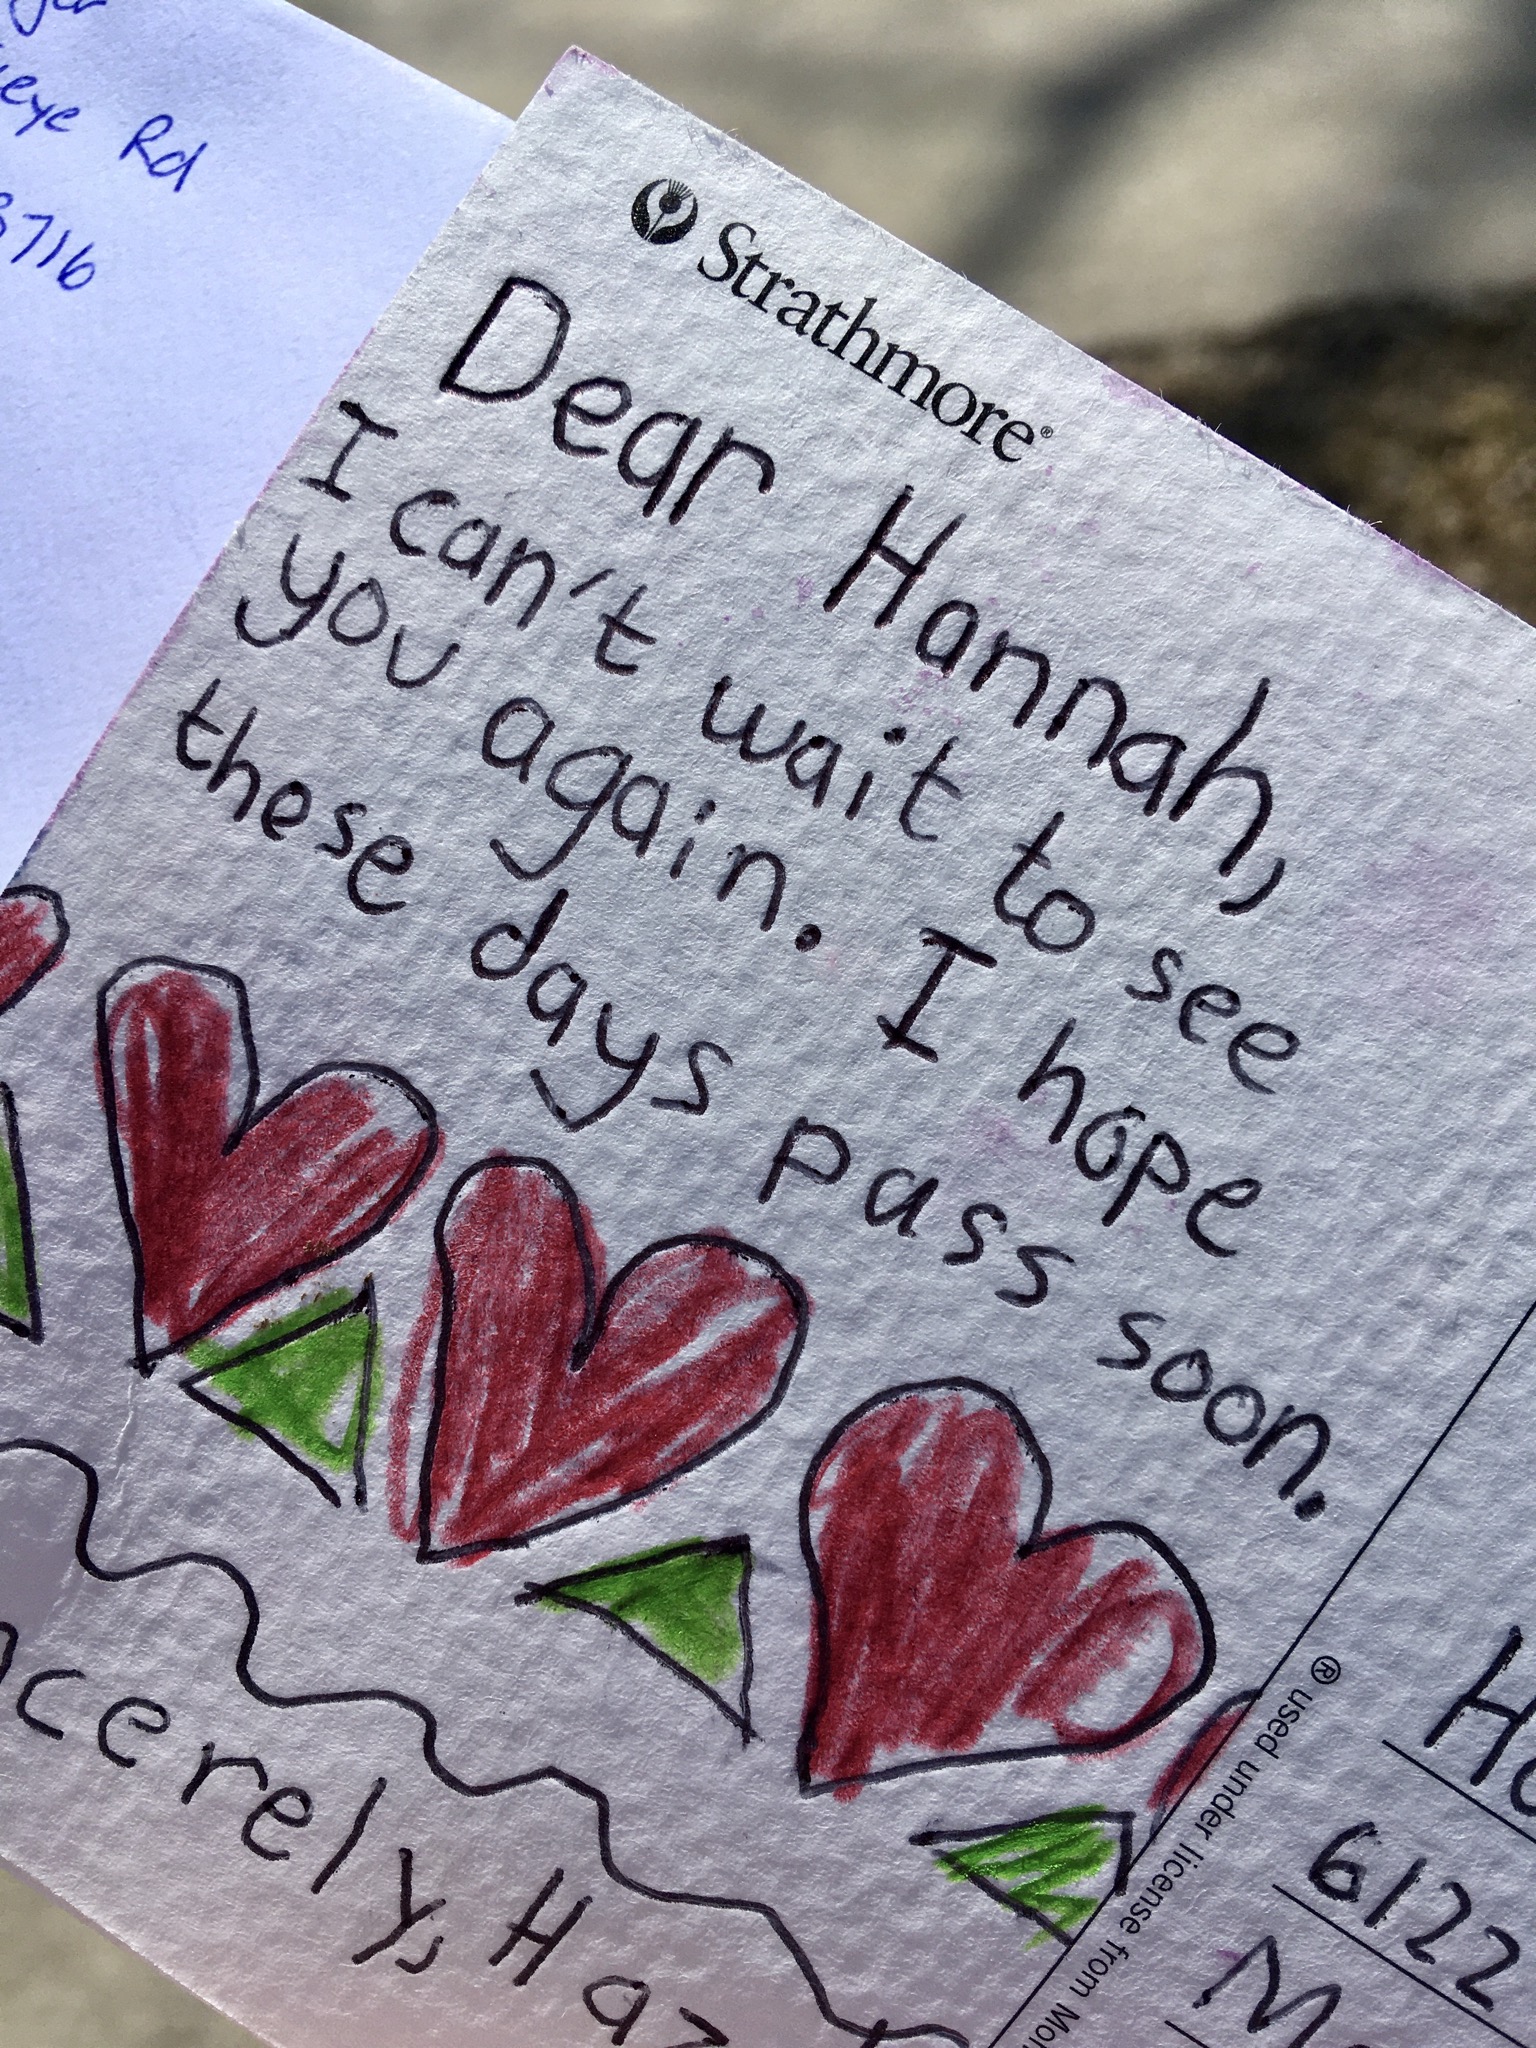 Rd
8716
Strathmore®
Dear Hannah,
I can't wait to see
you again. I hope
these days pass soon.
® used under license from
6122